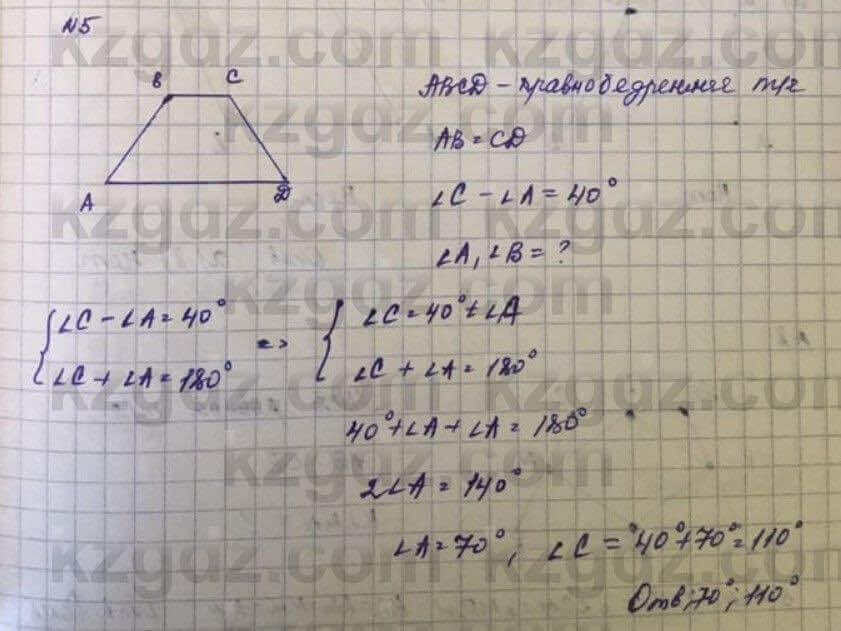 №5
B C
A D
ABCD - правнобедренная тр/к
AB = CD
∠C - ∠A = 40°
∠A, ∠B = ?
∠C - ∠A = 40° => ∠C = 40° + ∠A
∠C + ∠A = 180° ∠C + ∠A = 180°
40° + ∠A + ∠A = 180°
2∠A = 140°
∠A = 70°; ∠C = 40° + 70° = 110°
Отв; 70°; 110°
kzgdz.com